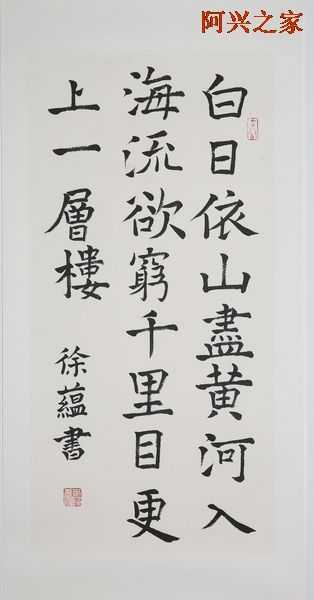 阿兴之家
白日依山盡黄河入
海流欲窮千里目更
上一層樓
徐蘊書